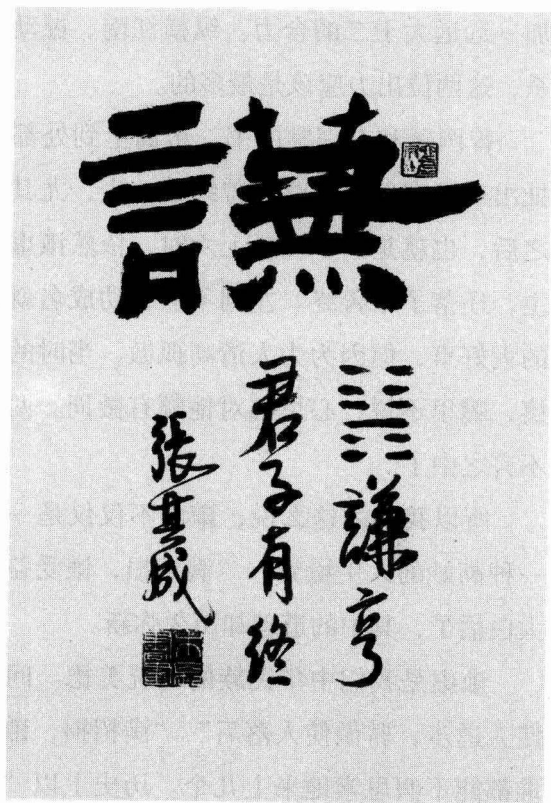 謙
䷎謙亨
君子有終
張其成